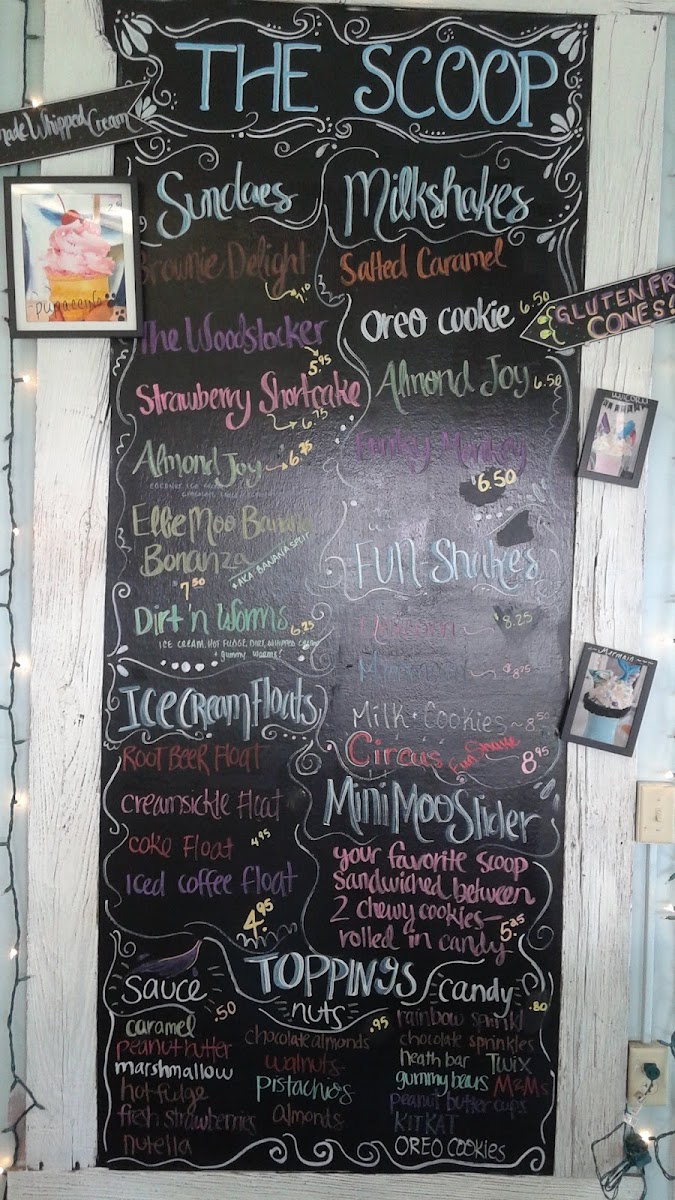 THE SCOOP
made Whipped Cream
Sundaes
Brownie Delight
7.10
The Woodstocker
5.95
Strawberry Shortcake
6.75
Almond Joy 6.75
Ellie Moo Banana
Bonanza
*AKA: BANANA SPLIT
7.50
Dirt 'n Worms 6.25
ICE CREAM, HOT FUDGE, DIRT, WHIPPED CREAM
+ gummy worms!
Ice Cream Floats
ROOT BEER Float
creamsickle Float
coke Float 4.95
Iced coffee Float
4.95
Milkshakes
Salted Caramel
Oreo cookie 6.50
Almond Joy 6.50
Funky Monkey
$6.50
FUN-Shakes
Unicorn $8.25
Mermaid
Milk + Cookies ~ 8.50
Circus Fun Shake 8.95
Mini Moo Slider
your favorite scoop
sandwiched between
2 chewy cookies—
rolled in candy 5.25
GLUTEN FR
CONES!
UNICORN
~Mermaid~
~PUPACCINO~
TOPPINGS
sauce .50
caramel
peanut butter
marshmallow
hot fudge
fresh strawberries
nutella
nuts .95
chocolate almonds
walnuts
pistachios
almonds
candy .80
rainbow sprinkl
chocolate sprinkles
heath bar Twix
gummy bears M&Ms
peanut butter cups
KITKAT
OREO COOKIES